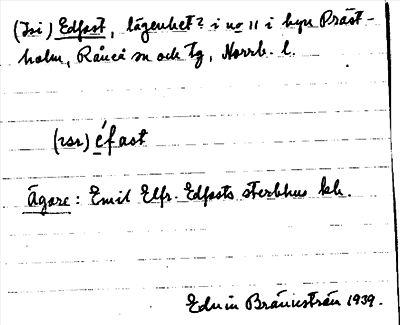 (Isi) Edfast, lägenhet? i no 11 i byn Präst-
holm, Råneå sn och tg, Norrb. l.
(isi) éfast
Ägare: Emil Elfr. Edfasts sterbhus
Edvin Brännström 1939.